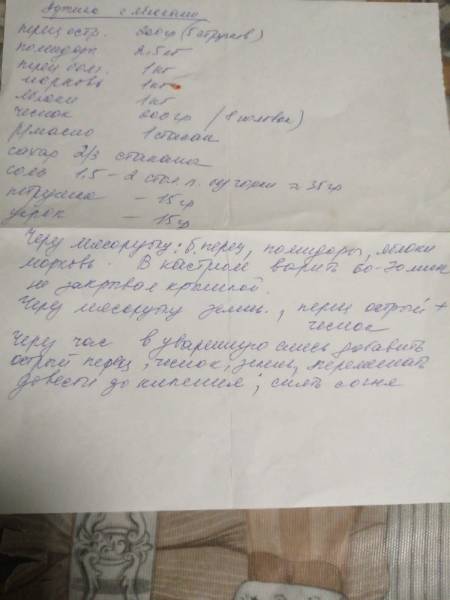 Аджика с яблоками
перец остр. 200 гр (5 стручков)
помидоры 2.5 кг
перец болг. 1 кг
морковь 1 кг
яблоки 1 кг
чеснок 200 гр / 8 головок)
р/масло 1 стакан
сахар 2/3 стакана
соль 1.5 - 2 стол. л. ≈ 35 гр
петрушка - 15 гр
укроп - 15 гр
Через мясорубку: б. перец, помидоры, яблоки
морковь. В кастрюле варить 60-70 мин
не закрывая крышкой.
Через мясорубку зелень, перец острый +
чеснок
Через час в уваренную смесь добавить
острый перец, чеснок, зелень, перемешать
довести до кипения, снять с огня